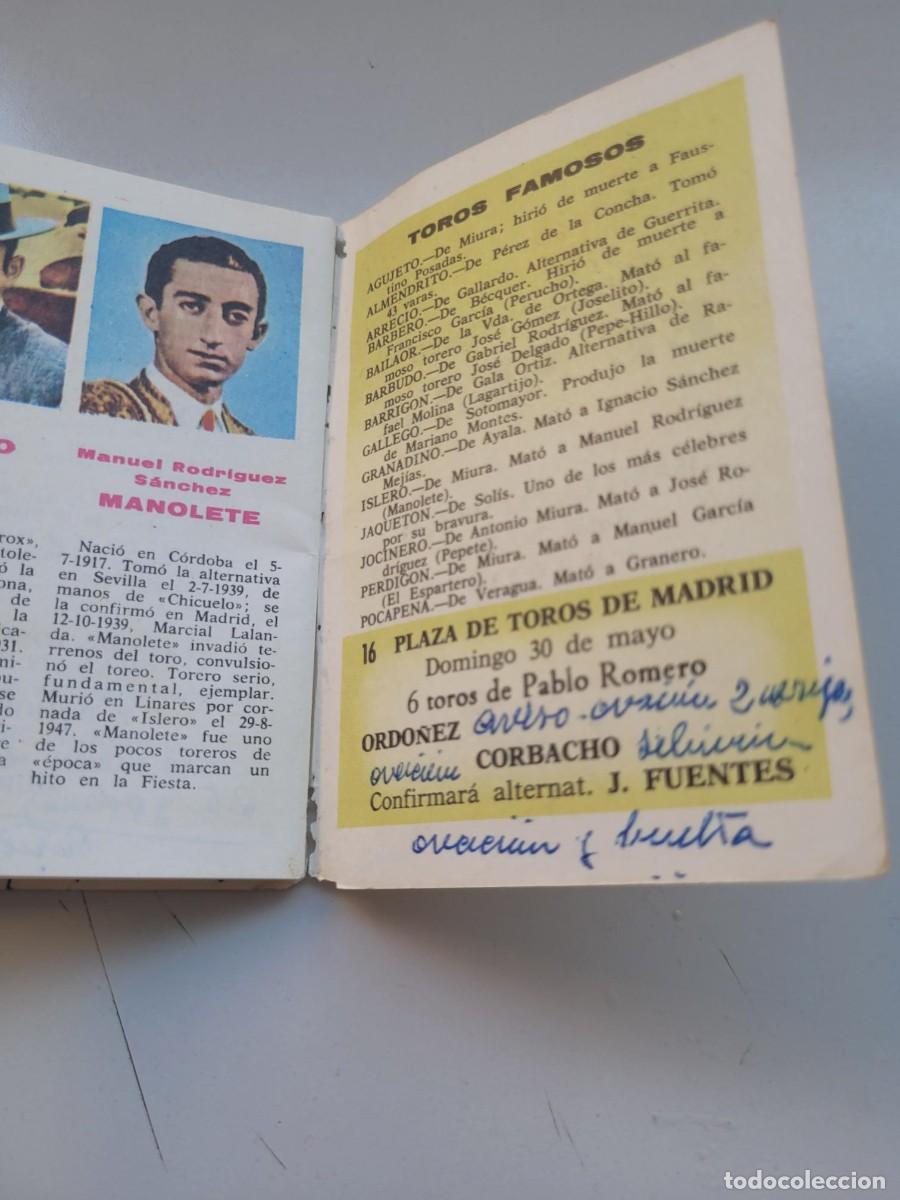 O
rox»,
tole-
ó la
ona,
de
la
ca-
931.
mi-
ou-
se
do
i-
e
a
Manuel Rodríguez
Sánchez
MANOLETE
Nació en Córdoba el 5-
7-1917. Tomó la alternativa
en Sevilla el 2-7-1939, de
manos de «Chicuelo»; se
la confirmó en Madrid, el
12-10-1939, Marcial Lalan-
da. «Manolete» invadió te-
rrenos del toro, convulsio-
nó el toreo. Torero serio,
fundamental, ejemplar.
Murió en Linares por cor-
nada de «Islero» el 29-8-
1947. «Manolete» fue uno
de los pocos toreros de
«época» que marcan un
hito en la Fiesta.
TOROS FAMOSOS
AGUJETO.—De Miura; hirió de muerte a Faus-
tino Posadas.
ALMENDRITO.—De Pérez de la Concha. Tomó
43 varas.
ARRECIO.—De Gallardo. Alternativa de Guerrita.
BARBERO.—De Bécquer. Hirió de muerte a
Francisco García (Perucho).
BAILAOR.—De la Vda. de Ortega. Mató al fa-
moso torero José Gómez (Joselito).
BARBUDO.—De Gabriel Rodríguez. Mató al fa-
moso torero José Delgado (Pepe-Hillo).
BARRIGON.—De Gala Ortiz. Alternativa de Ra-
fael Molina (Lagartijo).
GALLEGO.—De Sotomayor. Produjo la muerte
de Mariano Montes.
GRANADINO.—De Ayala. Mató a Ignacio Sánchez
Mejías.
ISLERO.—De Miura. Mató a Manuel Rodríguez
(Manolete).
JAQUETON.—De Solís. Uno de los más célebres
por su bravura.
JOCINERO.—De Antonio Miura. Mató a José Ro-
dríguez (Pepete).
PERDIGON.—De Miura. Mató a Manuel García
(El Espartero).
POCAPENA.—De Veragua. Mató a Granero.
16 PLAZA DE TOROS DE MADRID
Domingo 30 de mayo
6 toros de Pablo Romero
ORDOÑEZ aviso-ovación 2
ovación CORBACHO
Confirmará alternat. J. FUENTES
ovación y vuelta
todocoleccion